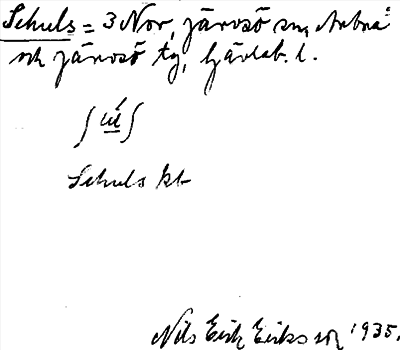 Schuls = 3 Nor, Järvsö sn, Arbrå
och Järvsö tg, Gävleb. l.
ʃ ú̲l̲ ʃ
Schuls kb
Nils Erik Eriksson 1935.